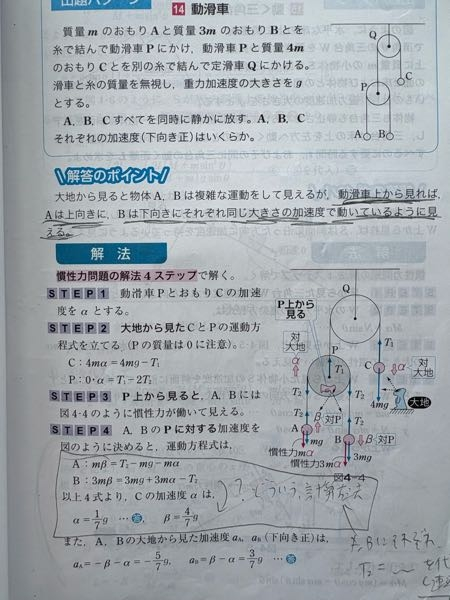 出題パターン
14 動滑車
質量 m のおもりAと質量 3m のおもりBとを
糸で結んで動滑車Pにかけ，動滑車Pと質量 4m
のおもりCとを別の糸で結んで定滑車Qにかける。
滑車と糸の質量を無視し，重力加速度の大きさを g
とする。
A，B，Cすべてを同時に静かに放す。A，B，C
それぞれの加速度(下向き正)はいくらか。
Q
P
C
A
B
解答のポイント
大地から見ると物体A，Bは複雑な運動をして見えるが，動滑車上から見れば，
Aは上向きに，Bは下向きにそれぞれ同じ大きさの加速度で動いているように見
える。
解法
慣性力問題の解法4ステップで解く。
STEP1 動滑車PとおもりCの加速
度を α とする。
STEP2 大地から見たCとPの運動方
程式を立てる(Pの質量は0に注意)。
C：4mα＝4mg−T₁
P：0·α＝T₁−2T₂
STEP3 P上から見ると，A，Bには
図4-4のように慣性力が働いて見える。
STEP4 A，BのPに対する加速度を
図のように決めると，運動方程式は，
A：mβ＝T₂−mg−mα
B：3mβ＝3mg＋3mα−T₂
以上4式より，Cの加速度 α は，
α＝1/7 g …答， β＝4/7 g
また，A，Bの大地から見た加速度 aA，aB (下向き正)は，
aA＝−β−α＝−5/7 g， aB＝β−α＝3/7 g …答
Q
P上から
見る
対
大地
α
P
T₁
T₁
C
α
対
大地
4mg
大地
T₂
T₂
T₂
T₂
β
対P
A
mg
β
対P
慣性力mα
B
3mg
慣性力3mα
図4-4
？どういう計算方法
A，Bにそれぞれ
T₂＝